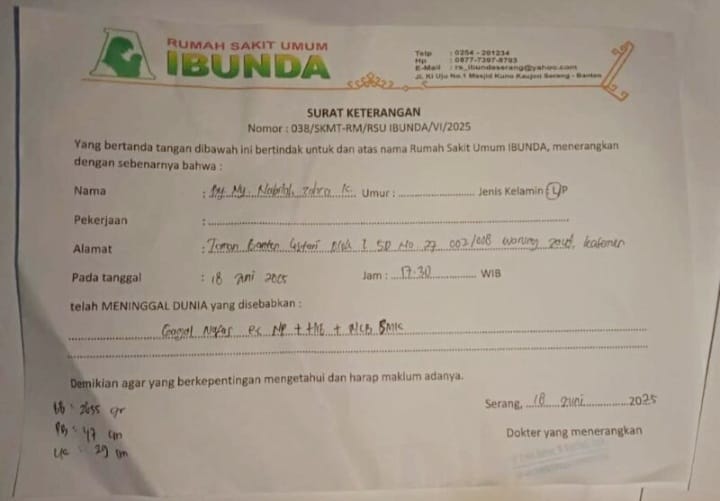 RUMAH SAKIT UMUM
IBUNDA
Telp : 0254 - 201234
Hp : 0877-7397-8793
E-Mail : rs_ibundaserang@yahoo.com
Jl. Ki Uju No.1 Masjid Kuno Kaujon Serang - Banten
SURAT KETERANGAN
Nomor : 038/SKMT-RM/RSU IBUNDA/VI/2025
Yang bertanda tangan dibawah ini bertindak untuk dan atas nama Rumah Sakit Umum IBUNDA, menerangkan
dengan sebenarnya bahwa :
Nama : By. Ny. Nabilah Zahra K. Umur : Jenis Kelamin L/P
Pekerjaan :
Alamat : Taman Banten Lestari Blok I 5D No 27 002/008 Warung Jaud, Kasemen
Pada tanggal : 18 Juni 2025 Jam : 17.30 WIB
telah MENINGGAL DUNIA yang disebabkan :
Gagal Nafas ec + + NCB
Demikian agar yang berkepentingan mengetahui dan harap maklum adanya.
Serang, 18 Juni 2025
Dokter yang menerangkan
BB : 2655 gr
PB : 47 cm
LK : 29 cm